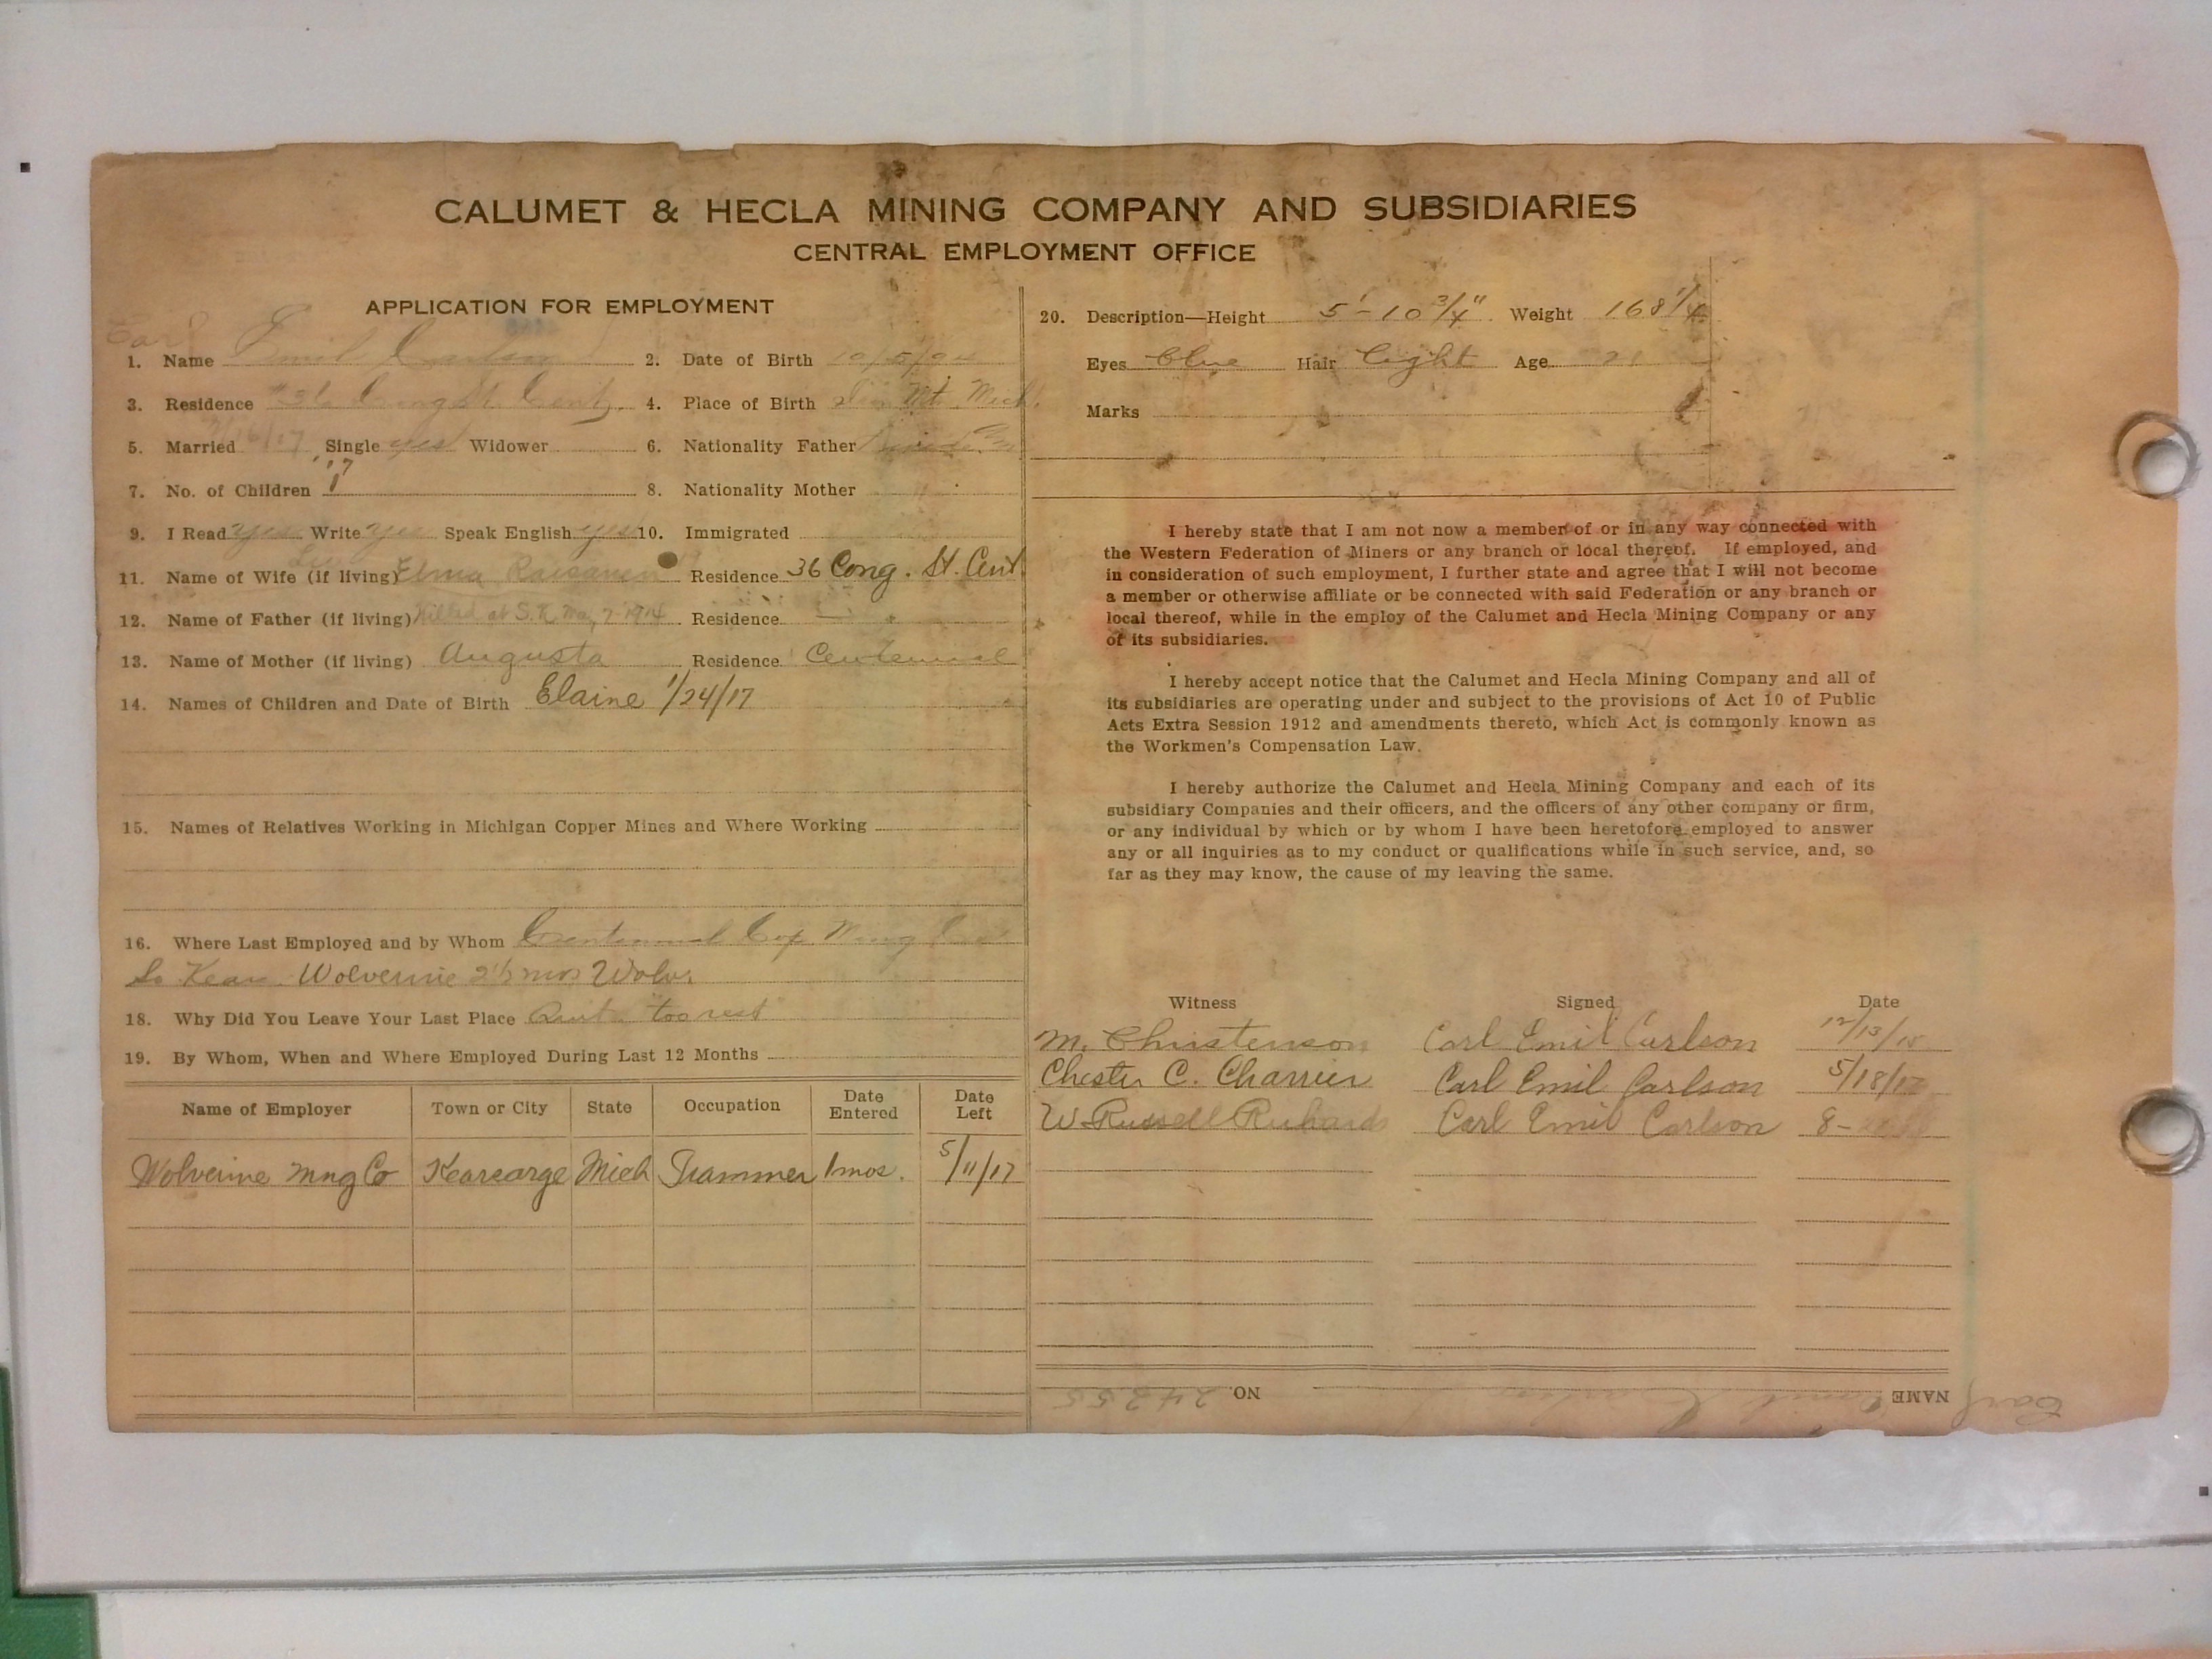 CALUMET & HECLA MINING COMPANY AND SUBSIDIARIES
CENTRAL EMPLOYMENT OFFICE
APPLICATION FOR EMPLOYMENT
Carl
1. Name Emil Carlson 2. Date of Birth 10/5/94
3. Residence #36 Cong St. Cent. 4. Place of Birth Mt. Mich.
5. Married Single yes Widower 6. Nationality Father
'17
7. No. of Children 1 8. Nationality Mother "
9. I Read yes Write yes Speak English yes 10. Immigrated
11. Name of Wife (if living) Elma Raisanen Residence 36 Cong. St. Cent.
12. Name of Father (if living) Killed at S. K. May 7-1914 Residence —
13. Name of Mother (if living) Augusta Residence Centennial
14. Names of Children and Date of Birth Elaine 1/24/17
15. Names of Relatives Working in Michigan Copper Mines and Where Working
16. Where Last Employed and by Whom Centennial Cop Mng
So Kear. Wolverine 2½ mos Wolv.
18. Why Did You Leave Your Last Place Quit to rest
19. By Whom, When and Where Employed During Last 12 Months
Name of Employer Town or City State Occupation Date Entered Date Left
Wolverine Mng Co Kearsarge Mich Trammer 1 mos. 5/11/17
20. Description—Height 5'-10 3/4" Weight 168 1/4
Eyes Blue Hair Light Age 21
Marks
I hereby state that I am not now a member of or in any way connected with
the Western Federation of Miners or any branch or local thereof. If employed, and
in consideration of such employment, I further state and agree that I will not become
a member or otherwise affiliate or be connected with said Federation or any branch or
local thereof, while in the employ of the Calumet and Hecla Mining Company or any
of its subsidiaries.
I hereby accept notice that the Calumet and Hecla Mining Company and all of
its subsidiaries are operating under and subject to the provisions of Act 10 of Public
Acts Extra Session 1912 and amendments thereto, which Act is commonly known as
the Workmen's Compensation Law.
I hereby authorize the Calumet and Hecla Mining Company and each of its
subsidiary Companies and their officers, and the officers of any other company or firm,
or any individual by which or by whom I have been heretofore employed to answer
any or all inquiries as to my conduct or qualifications while in such service, and, so
far as they may know, the cause of my leaving the same.
Witness Signed Date
M. Christenson Carl Emil Carlson 12/13/15
Chester C. Charrier Carl Emil Carlson 5/18/17
W. Russell Richards Carl Emil Carlson 8-
NAME Carl Emil Carlson NO. 24255